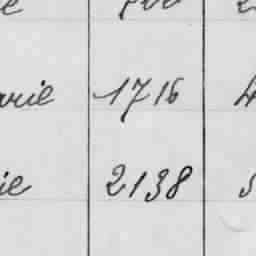 arie 1716 4
ie 2138 5